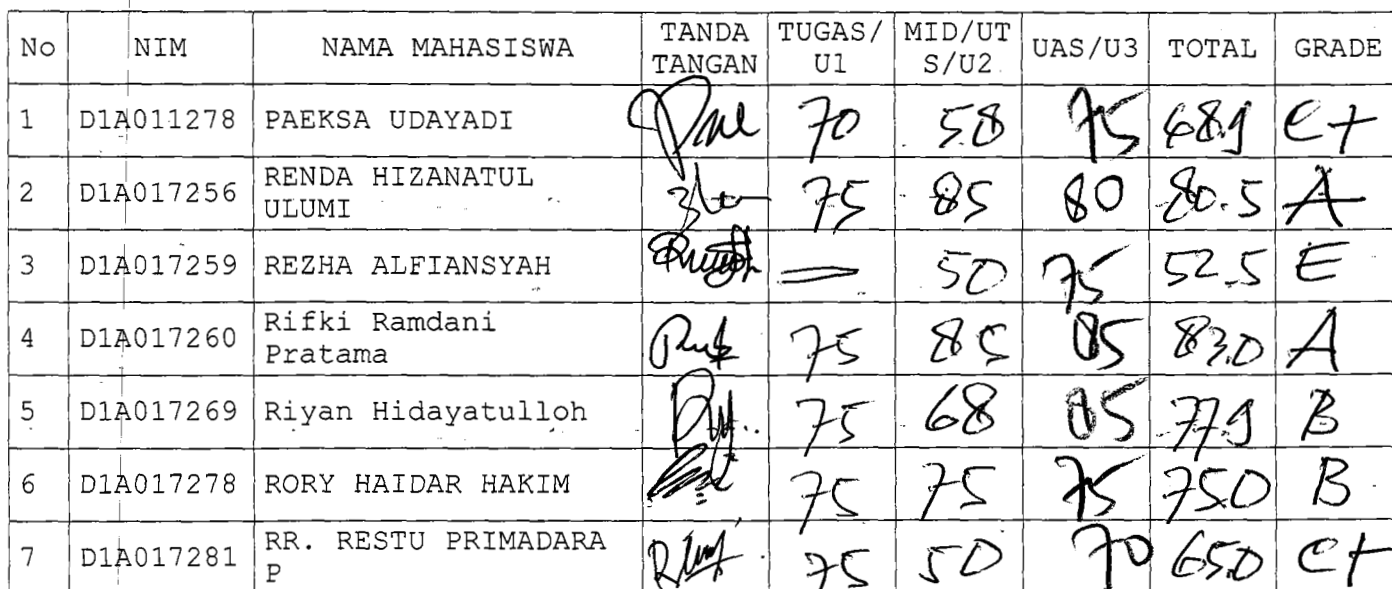 No NIM NAMA MAHASISWA TANDA TANGAN TUGAS/U1 MID/UTS/U2 UAS/U3 TOTAL GRADE
1 D1A011278 PAEKSA UDAYADI 70 58 75 68.9 C+
2 D1A017256 RENDA HIZANATUL ULUMI 75 85 80 80.5 A
3 D1A017259 REZHA ALFIANSYAH — 50 75 52.5 E
4 D1A017260 Rifki Ramdani Pratama 75 85 85 83.0 A
5 D1A017269 Riyan Hidayatulloh 75 68 85 77.9 B
6 D1A017278 RORY HAIDAR HAKIM 75 75 75 75.0 B
7 D1A017281 RR. RESTU PRIMADARA P 75 50 70 65.0 C+